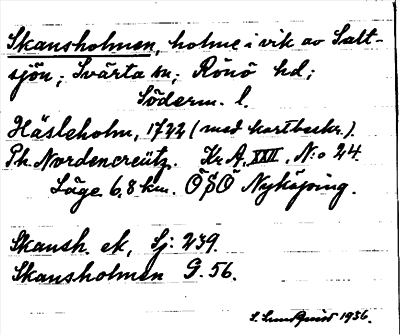 Skansholmen, holme i vik av Salt-
sjön; Svärta sn; Rönö hd;
Söderm. l.
Hásleholm, 1722 (med kartbeskr.).
Ph. Nordencreütz. Kr. A. XXII, N:o 24.
Läge 6,8 km. ÖSÖ Nyköping.
Skansh. ek, Sj: 239.
Skansholmen G. 56.
S. Lundquist 1936.